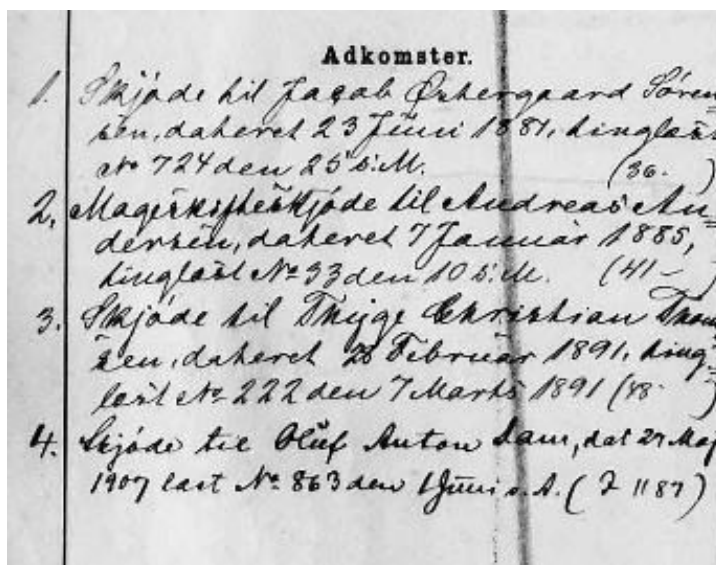 Adkomster.
1. Skjøde til Jacob Østergaard Søren-
sen, dateret 23 Juni 1881, tinglæst
No 724 den 25 s. M. (36. )
2. Mageskifteskjøde til Andreas An-
dersen, dateret 7 Januar 1885,
tinglæst No 33 den 10 s. M. (41 – )
3. Skjøde til Thyge Christian Thom-
sen, dateret Februar 1891, ting-
læst No 222 den 7 Marts 1891 (48 )
4. Skjøde til Oluf Anton Dam, dat 27 Maj
1907 læst No 863 den 1 Juni s. A. ( 1187)